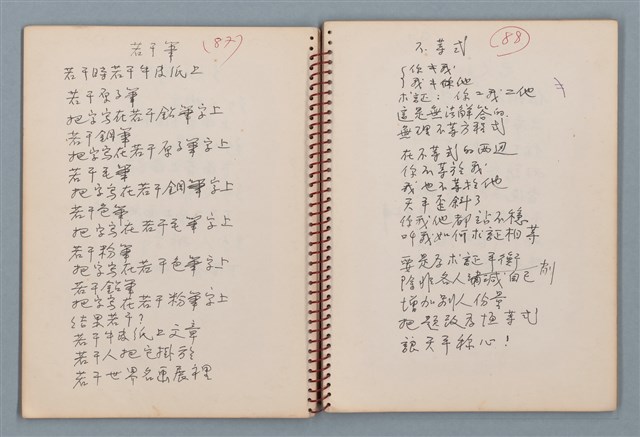 若干筆
(87)
若干時若干牛皮紙上
若干原子筆
把字写在若干鉛筆字上
若干鋼筆
把字写在若干原子筆字上
若干毛筆
把字写在若干鋼筆字上
若干色筆
把字写在若干毛筆字上
若干粉筆
把字写在若干色筆字上
若干鉛筆
把字写在若干粉筆字上
結果若干?
若干牛皮紙上文章
若干人把它掛於
若干世界名画展裡
不等式
(88)
你≠我
我≠他
求証:你=我=他
這是無法解答的
無理不等方程式
在不等式的两辺
你不等於我
我也不等於他
天平歪斜了
你我他都站不穩
叫我如何求証相等
要是求証平衡
除非各人 減 自己
削
增加別人份量
把題改為恒等式
讓天平称心!